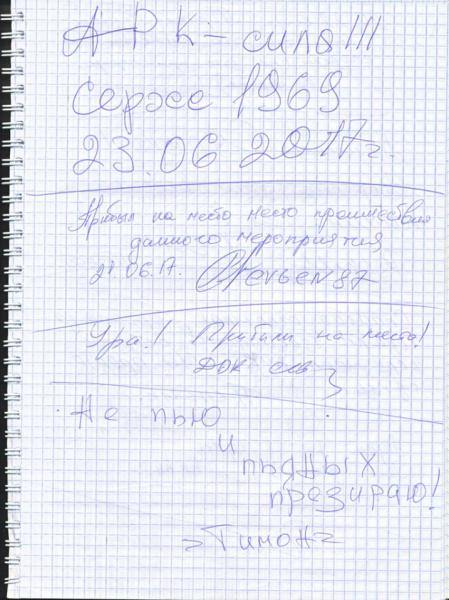 АРК – сила!!!
Серже 1969
23.06 2017г.
Прибыл на место место проишествия
данного мероприятия
2 .06.17. 87
Ура! Прибыли на место!
Док
Не пью
и
пьяных
презираю!
>Тимон<